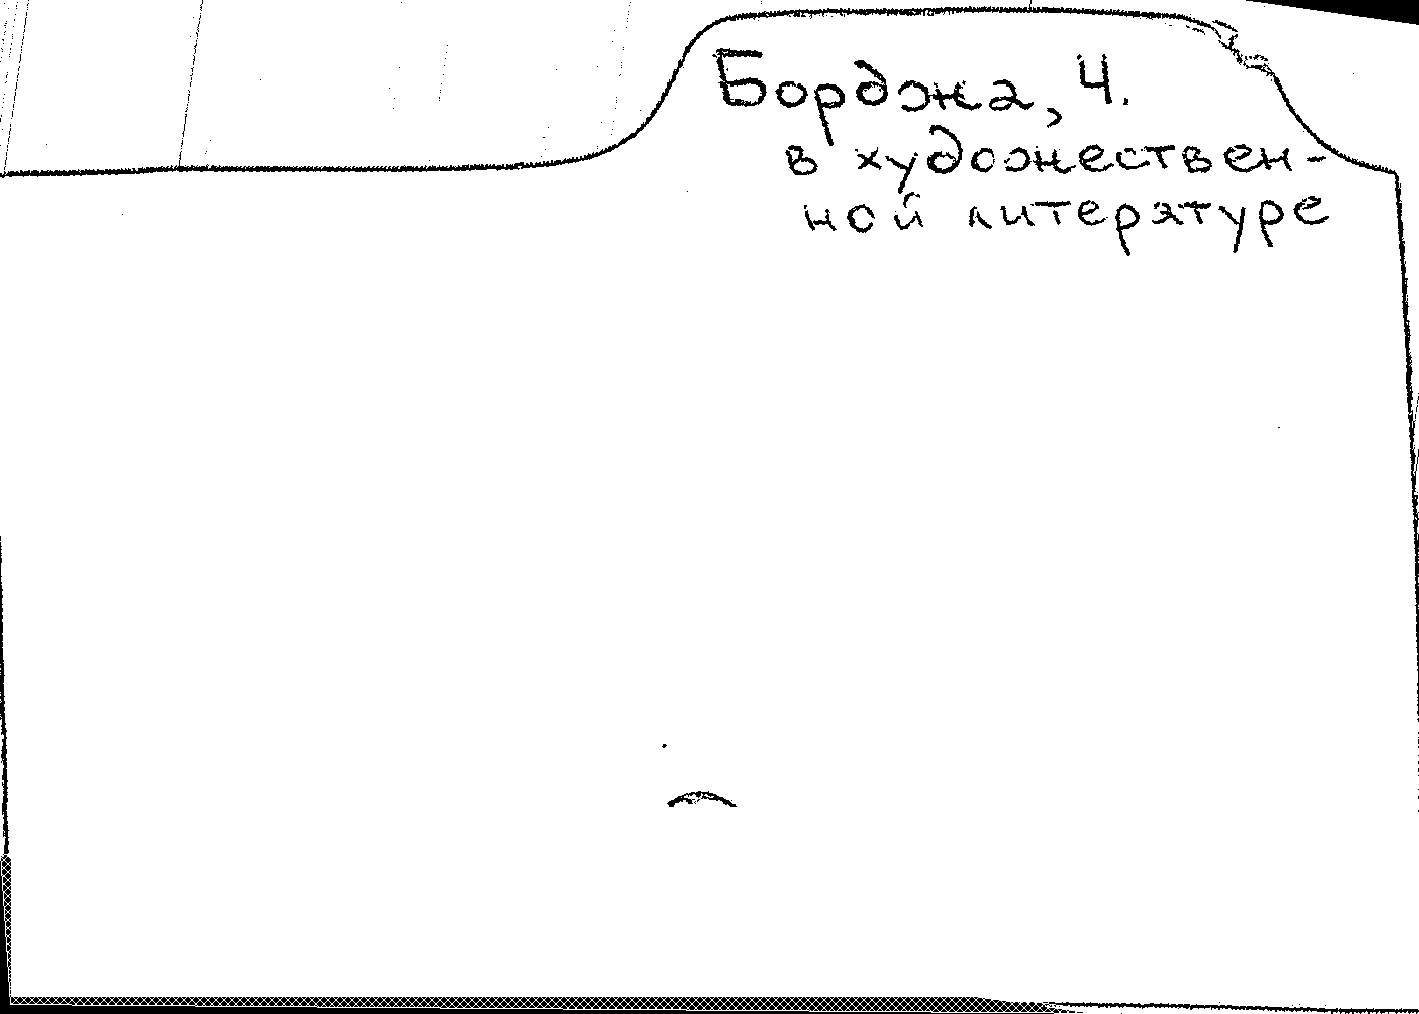 Борджа, Ч.
в художествен-
ной литературе